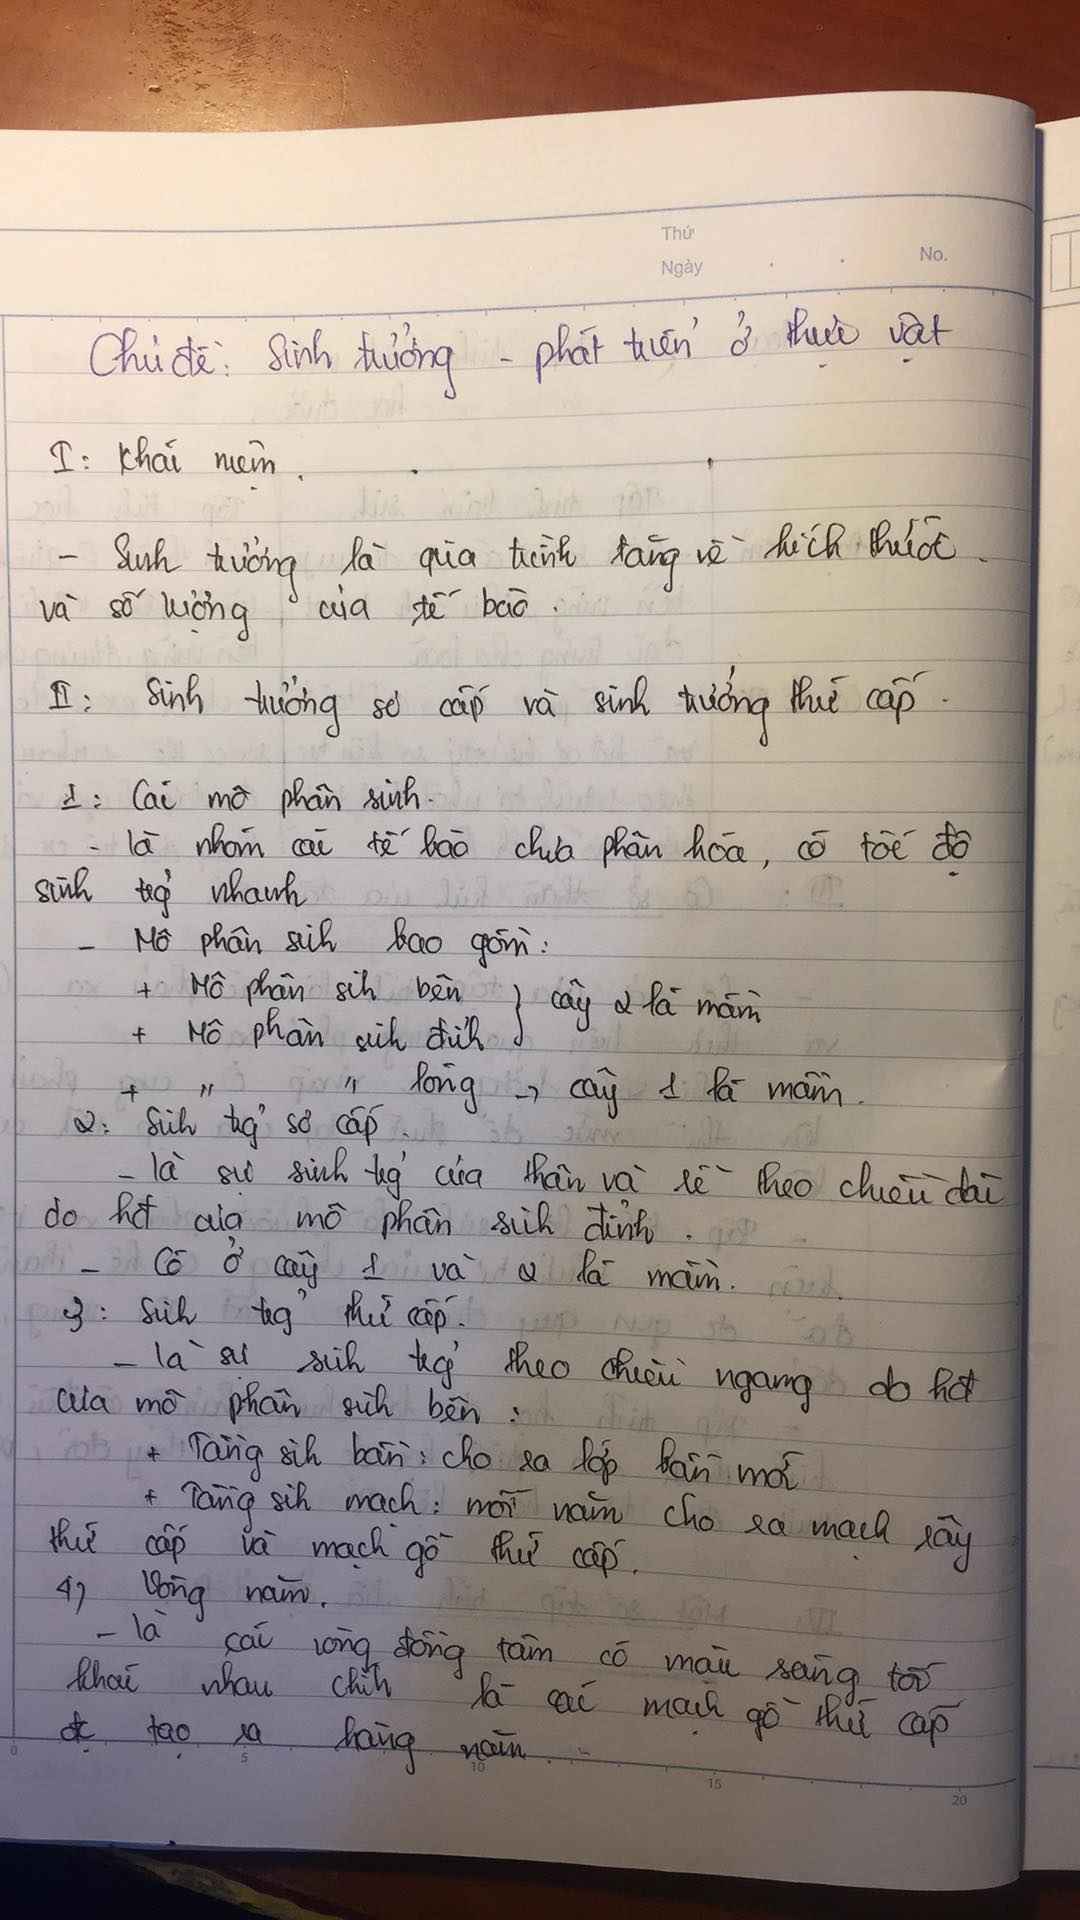 Thứ
Ngày
No.
Chủ đề: Sinh trưởng - phát triển ở thực vật
I: Khái niệm.
- Sinh trưởng là quá trình tăng về kích thước
và số lượng của tế bào.
II: Sinh trưởng sơ cấp và sinh trưởng thứ cấp.
1: Các mô phân sinh.
- là nhóm các tế bào chưa phân hóa, có tốc độ
sinh trg̉ nhanh
- Mô phân sinh bao gồm:
+ Mô phân sih bên } cây 2 lá mầm
+ Mô phân sih đỉnh
+ " " lóng → cây 1 lá mầm.
2: Sinh trg̉ sơ cấp.
- là sự sinh trg̉ của thân và rễ theo chiều dài
do hđ của mô phân sinh đỉnh.
- Có ở cây 1 và 2 lá mầm.
3: Sinh trg̉ thứ cấp.
- là sự sinh trg̉ theo chiều ngang do hđ
của mô phân sinh bên:
+ Tầng sih bần: cho ra lớp bần mới
+ Tầng sih mạch: mỗi năm cho ra mạch rây
thứ cấp và mạch gỗ thứ cấp.
4) Vòng năm.
- là các vòng đồng tâm có màu sáng tối
khác nhau chính là các mạch gỗ thứ cấp
đc tạo ra hàng năm
0 5 10 15 20